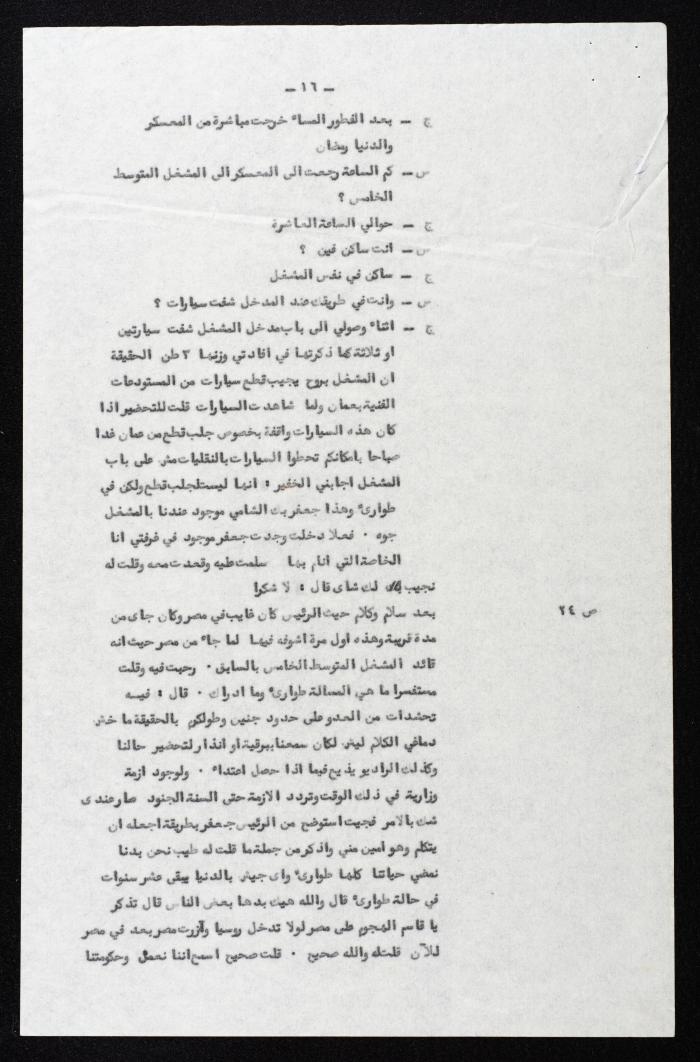 ـ ١٦ ـ
ج ـ بعد الفطور المساء خرجت مباشرة من المعسكر
والدنيا رمضان
س ـ كم الساعة رجعت الى المعسكر الى المشغل المتوسط
الخامس ؟
ج ـ حوالي الساعة العاشرة
س ـ انت ساكن فين ؟
ج ـ ساكن في نفس المشغل
س ـ وانت في طريقك عند المدخل شفت سيارات ؟
ج ـ اثناء وصولي الى باب مدخل المشغل شفت سيارتين
او ثلاثة كما ذكرتها في افادتي وزنها ٣ طن الحقيقة
ان المشغل بروح يجيب قطع سيارات من المستودعات
الفنية بعمان ولما شاهدت السيارات قلت للتحضير اذا
كان هذه السيارات واقفة بخصوص جلب قطع من عمان غدا
صباحا بامكانكم تحطوا السيارات بالنقليات مش على باب
المشغل اجابني الخفير : انها ليست لجلب قطع ولكن في
طوارئ وهذا جعفر بك الشامي موجود عندنا بالمشغل
جوه . فعلا دخلت وجدت جعفر موجود في غرفتي انا
الخاصة التي انام بها سلمت عليه وقعدت معه وقلت له
نجيب لك شاى قال : لا شكرا
ص ٢٤
بعد سلام وكلام حيث الرئيس كان غايب في مصر وكان جاى من
مدة قريبة وهذه اول مرة اشوفه فيها لما جاء من مصر حيث انه
قائد المشغل المتوسط الخامس بالسابق . رحبت فيه وقلت
مستفسرا ما هي المسالة طوارئ وما ادراك . قال : فيه
تحشدات من العدو على حدود جنين وطولكرم بالحقيقة ما خش
دماغي الكلام ليش لكان سمعنا ببرقية او انذار لتحضير حالنا
وكذلك الراديو يذيع فيما اذا حصل اعتداء . ولوجود ازمة
وزارية في ذلك الوقت وتردد الازمة حتى السنة الجنود صار عندى
شك بالامر فجيت استوضح من الرئيس جعفر بطريقة اجعله ان
يتكلم وهو امين مني واذكر من جملة ما قلت له طيب نحن بدنا
نمضي حياتنا كلها طوارئ واى جيش بالدنيا يبقى عشر سنوات
في حالة طوارئ قال والله هيك بدها بعض الناس قال تذكر
يا قاسم الهجوم على مصر لولا تدخل روسيا وآزرت مصر بعد في مصر
للآن قلتله والله صحيح . قلت صحيح اسمع اننا نعمل وحكومتنا